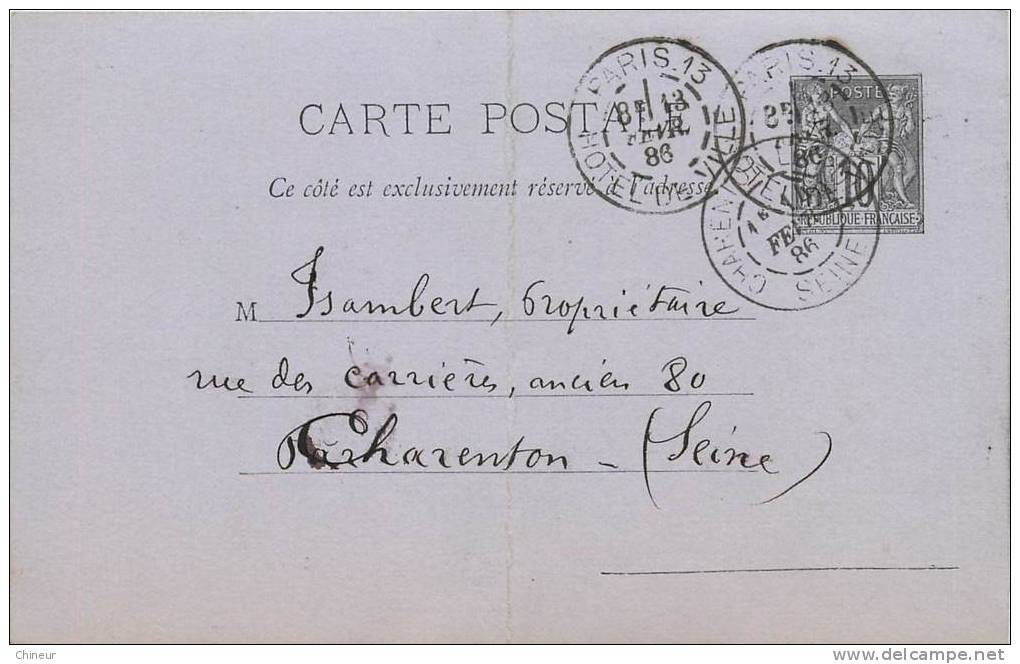 PARIS.13
8E 13
FEVR
86
HOTEL DE VILLE
PARIS.13
8E
86
POSTE
10
REPUBLIQUE FRANÇAISE
CARTE POSTALE
Ce côté est exclusivement réservé à l'adresse
1E
FEVR
86
SEINE
M Isambert, propriétaire
rue des carrières, ancien 80
Charenton - (Seine)
Chineur
www.delcampe.net